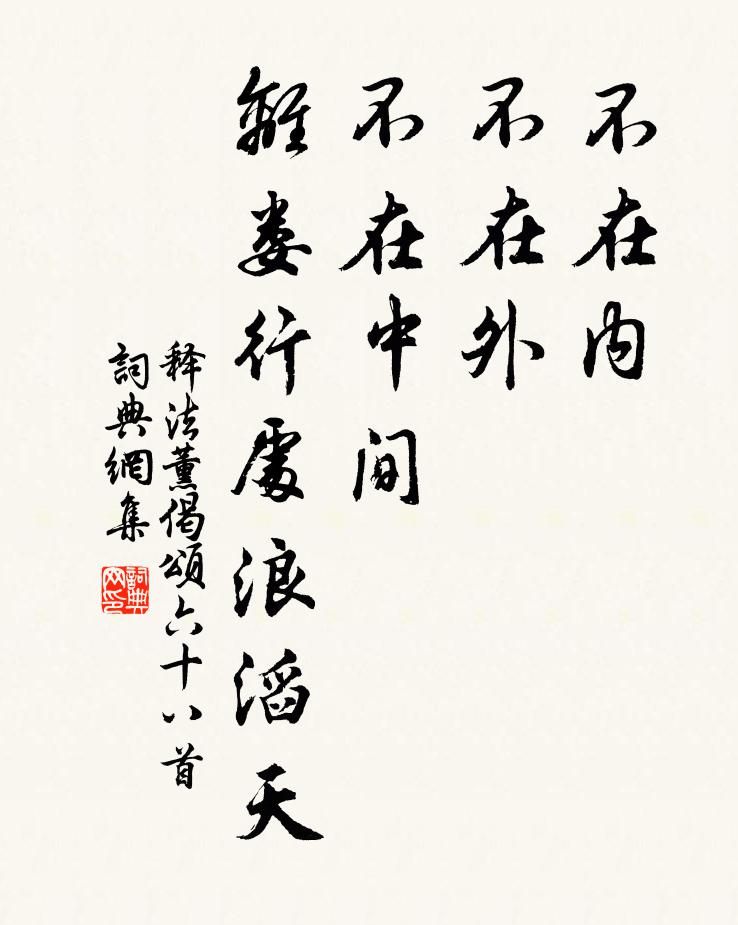 不在内
不在外
不在中间
離娄行處浪滔天
释法薰偈頌六十八首
詞典網集
詞典网印